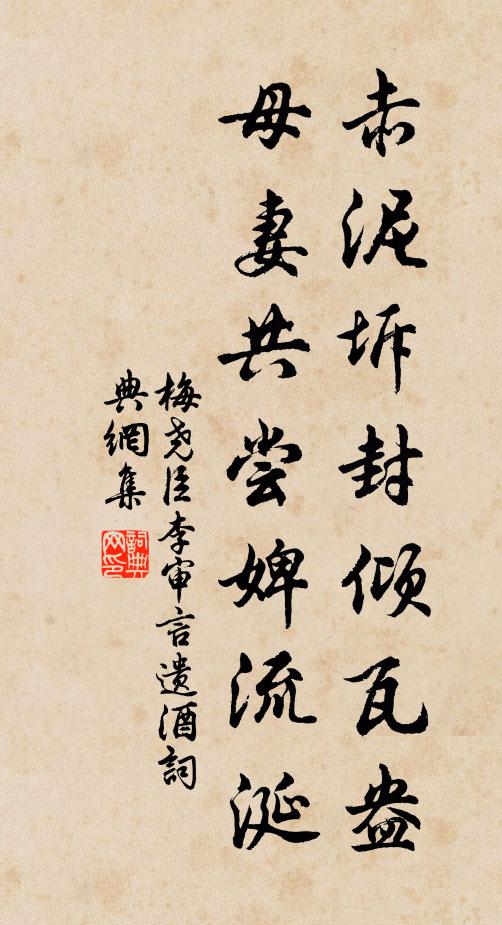 赤泥坼封倾瓦盎
母妻共尝婢流涎
梅尧臣李审言遗酒詞
典網集
詞典网印